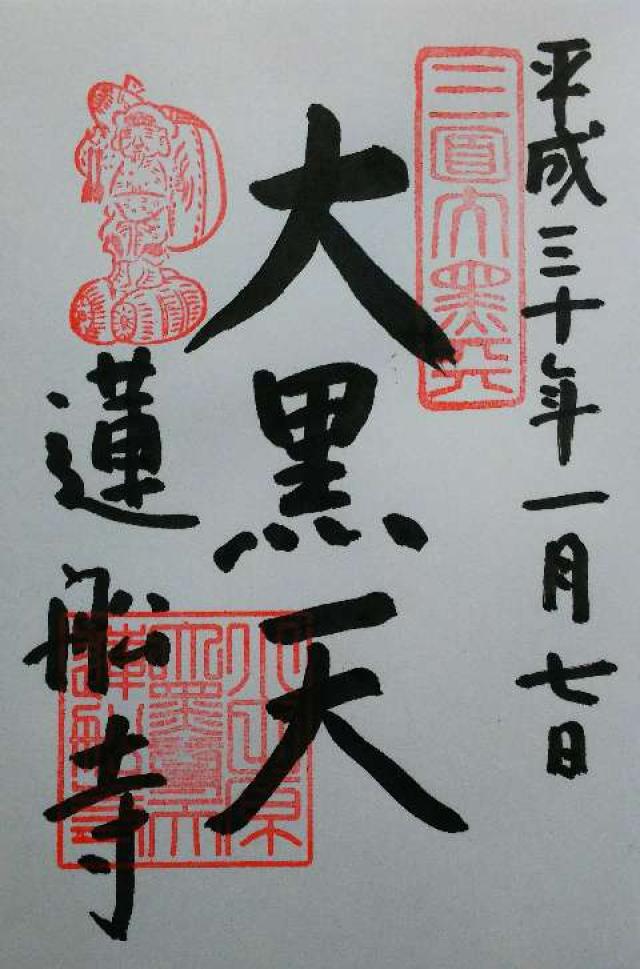 平成三十年一月七日
三面大黒天
大黒天
蓮舩寺
小田原